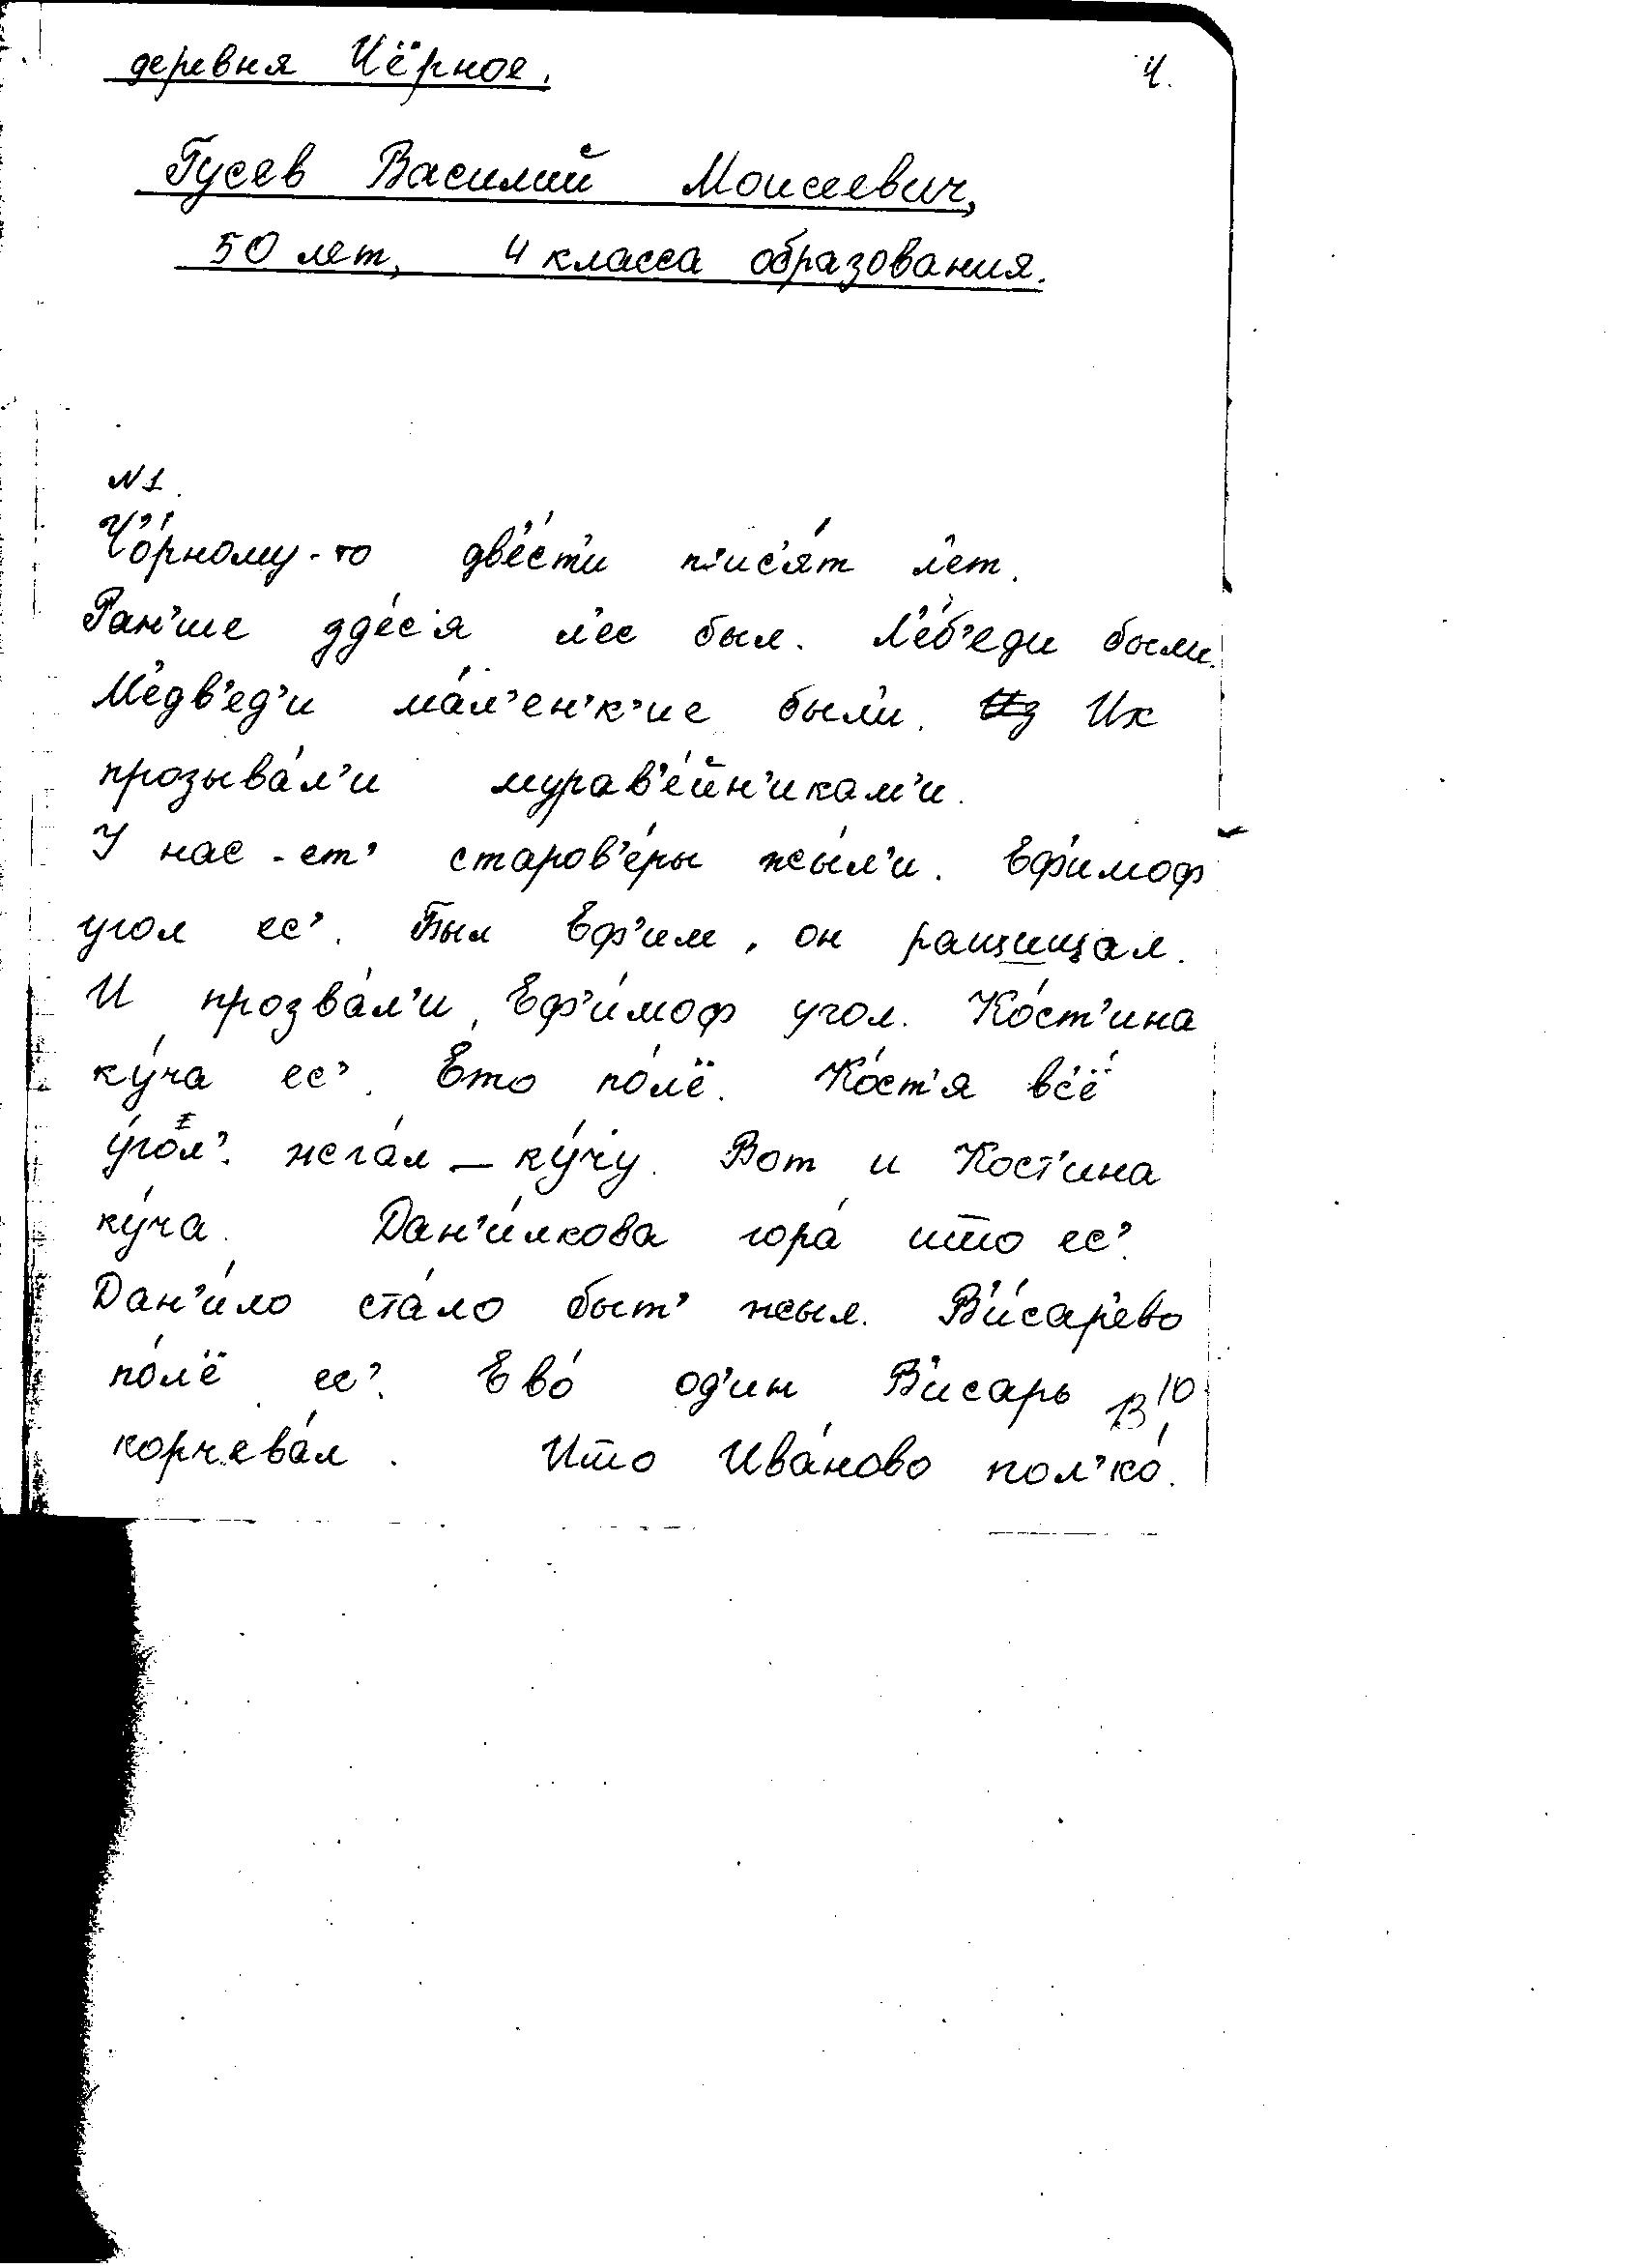 деревня Чёрное.
4.
Гусев Василий Моисеевич,
50 лет, 4 класса образования.
N 1.
Ч’о́рному-то дв’е́с’т’и п’ис’я́т л’ет.
Ран’ше зд’е́с’я л’ес был. Л’е́б’еди были.
М’едв’ед’и ма́л’ен’к’ие был’и. Из Их
прозыва́л’и мурав’е́йн’икам’и.
У нас-ет’ старов’е́ры жы́л’и. Еф’и́моф
угол ес’. Был Еф’им, он ращищал.
И прозва́л’и, Еф’и́моф угол. Ко́ст’ина
ку́ча ес’. Ето по́лё. Ко́ст’я вс’ё
у́гол’ жега́л – ку́чу. Вот и Кост’ина
ку́ча. Дан’и́лкова гора́ што ес’.
Дан’и́ло ста́ло быт’ жыл. В’и́сар’ево
по́л’ё ес’. Ево́ од’ин В’исарь
корчева́л. Што Ива́ново пол’ко́.